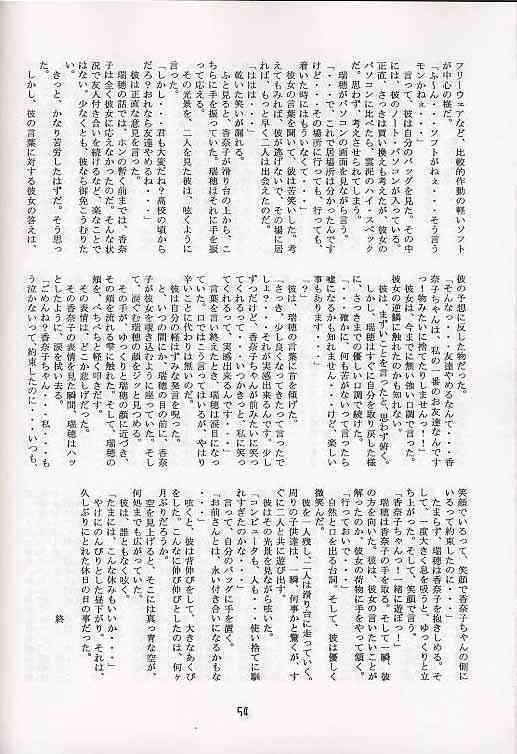 フリーウェアなど、比較的作動の軽いソフト
が中心の様だ。
「ふ〜ん・・・ソフトがねぇ・・・そう言う
モンかねぇ・・・」
言って、彼は自分のバッグを見た。その中
には、彼のノート・パソコンが入っている。
正直、さっきは買い換えも考えたが、彼女の
パソコンに比べたら、雲泥のハイ・スペック
だ。思わず、考えさせられてしまう。
瑞穂がパソコンの画面を見ながら言う。
「・・・で、これで居場所は分かったんです
けど・・・その場所に行っても、行っても、
着いた時にはもういなくて・・・」
彼女の言葉を聞いて、彼は苦笑した。考
えてもみれば、彼が逃げないで、その場に居
れば、もっと早く二人は出会えたのだ。
「ははは・・・」
乾いた笑いが漏れる。
ふと見ると、香奈子が滑り台の上から、こ
ちらに手を振っていた。瑞穂はそれに手を振
って応える。
その光景を、二人を見た彼は、呟くように
言った。
「しかし・・・君も大変だね？高校の頃から
だろ？おれなら友達やめるね・・・」
彼は正直な意見を言った。
瑞穂の話では、ホンの暫く前までは、香奈
子は全く彼女に応えなかったのだ。そんな状
況で友人付き合いを続けるなど、楽なことで
はない。少なくとも、彼なら御免こうむりた
い。
きっと、かなり苦労したはずだ。そう思っ
た。
しかし、彼の言葉に対する彼女の答えは、
彼の予想に反した物だった。
「そんな・・・友達やめるなんて・・・香
奈子ちゃんは、私の一番のお友達なんです
っ！物みたいに捨てたりしませんっ！！」
彼女は、今までに無い強い口調で言った。
彼女の逆鱗に触れたのかも知れない。
彼は、まずいことを言ったと、思わず俯く。
しかし、瑞穂はすぐに自分を取り戻した様
に、さっきまでの優しい口調で続けた。
「・・・確かに、何も苦がないって言ったら
嘘になるかも知れません・・・けど、楽しい
事もあります・・・」
「？」
彼は、瑞穂の言葉に首を傾げた。
「さっき、少し良くなってきたって言ったで
しょ？・・・それが実感出来るんです。少し
ずつだけど、香奈子ちゃんが前みたいに笑っ
てくれるって・・・いつかきっと、私に笑っ
てくれるって、実感出来るんです・・・」
言葉を言い終えたとき、瑞穂は涙目になっ
ていた。口ではこう言ってはいるが、やはり
辛いことに代わりは無いのだ。
彼は自分の軽はずみな発言を呪った。
と、いつの間にか、瑞穂の目の前に、香奈
子が彼女を覗き込むように座っていた。そし
て、涙ぐむ瑞穂の顔をジッと見つめる。
その手が、ゆっくりと瑞穂の顔に近づき、
その頬を流れる雫に触れた。そして、瑞穂の
頬を、ぺちぺちと軽く叩きだす。
その表情は、どこか悲しげだった。
その香奈子の表情を見た瞬間、瑞穂はハッ
としたように、涙を拭い去る。
「ごめんね？香奈子ちゃん・・・私・・・も
う泣かないって、約束したのに・・・いつも、
笑顔でいるって、笑顔で香奈子ちゃんの側に
いるって約束したのに・・・」
たまらず、瑞穂は香奈子を抱きしめる。そ
して、一度大きく息を吸うと、ゆっくりと立
ち上がった。そして、笑顔で言う。
「香奈子ちゃんっ！一緒に遊ぼっ！」
瑞穂は香奈子の手を取る。そして一瞬、彼
の方を向いた。彼は彼女の言いたいことが
解ったのか、彼女の荷物に手をやって頷く。
「行っておいで・・・」
自然と口を出る台詞。そして、彼は優しく
微笑んだ。
彼を一人残し、二人は滑り台に走っていく。
周りの子供達は、一瞬、何事かと驚くが、す
ぐに二人と共に遊び出す。
彼はその光景を見ながら呟いた。
「コンピュータも、人も・・・使い捨てに馴
れすぎたのかな・・・」
言って、自分のバッグに手を置く。
「お前さんとは、永い付き合いになるかもな
・・・」
呟くと、彼は背伸びをして、大きなあくび
をした。こんなに伸び伸びとしたのは、何ヶ
月ぶりだろうか。
空を見上げると、そこには真っ青な空が、
何処までも広がっていた。
彼は、誰ともなく呟く。
「たまには、こんな休みもいいか・・・」
やけにのんびりとした昼下がり。それは、
久しぶりにとれた休日の日の事だった。
終
54